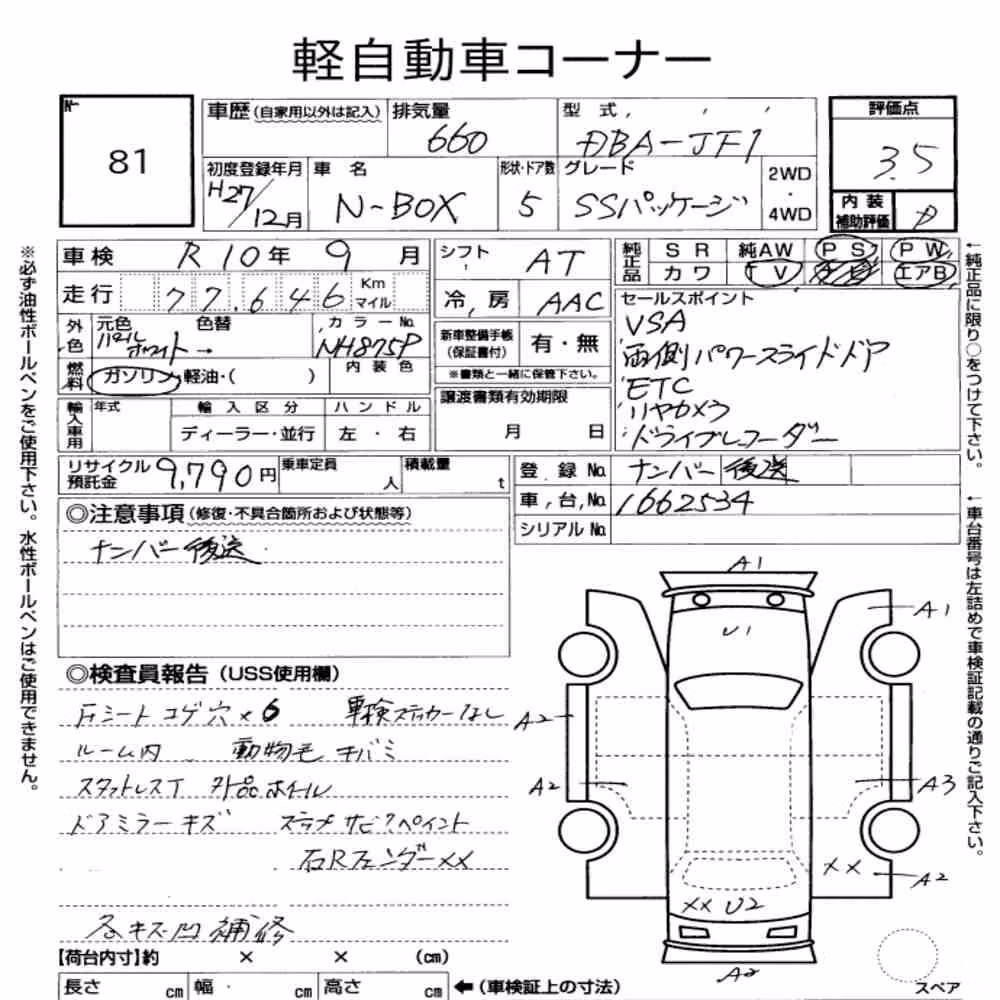 軽自動車コーナー
No.
81
車歴(自家用以外は記入)
排気量
660
型式
DBA-JF1
評価点
3.5
初度登録年月
H27/12月
車名
N-BOX
形状・ドア数
5
グレード
SSパッケージ
2WD
・
4WD
内装
補助評価
D
※必ず油性ボールペンをご使用下さい。水性ボールペンはご使用できません。
車検 R10年9月
走行 77,646 Km マイル
外色
元色
パールホワイト→
色替
カラーNo.
NH875P
燃料
ガソリン・軽油・( )
内装色
輸入車用
年式
輸入区分
ディーラー・並行
ハンドル
左・右
シフト AT
冷,房 AAC
新車整備手帳
(保証書付)
有・無
※書類と一緒に保管下さい。
譲渡書類有効期限
月 日
純正品
SR 純AW PS PW
カワ TV ナビ エアB
セールスポイント
VSA
両側パワースライドドア
ETC
リヤカメラ
ドライブレコーダー
←純正品に限り○をつけて下さい。
リサイクル預託金 9,790円
乗車定員 人
積載量 t
登録No. ナンバー後送
車台No. 1662534
シリアルNo.
←車台番号は左詰めで車検証記載の通りご記入下さい。
◎注意事項(修復・不具合箇所および状態等)
ナンバー後送
◎検査員報告(USS使用欄)
F席シートコゲ穴×6 車検ステッカーなし
ルーム内 動物毛 キバミ
スタットレスT 外品ホイール
ドアミラーキズ ステップサビ ペイント
右Rフェンダー××
各キズ凹補修
A1
A1
U1
A2
A2
A3
××
A2
××U2
A2
スペア
【荷台内寸】約 × × (cm)
長さ cm 幅 cm 高さ cm ←(車検証上の寸法)